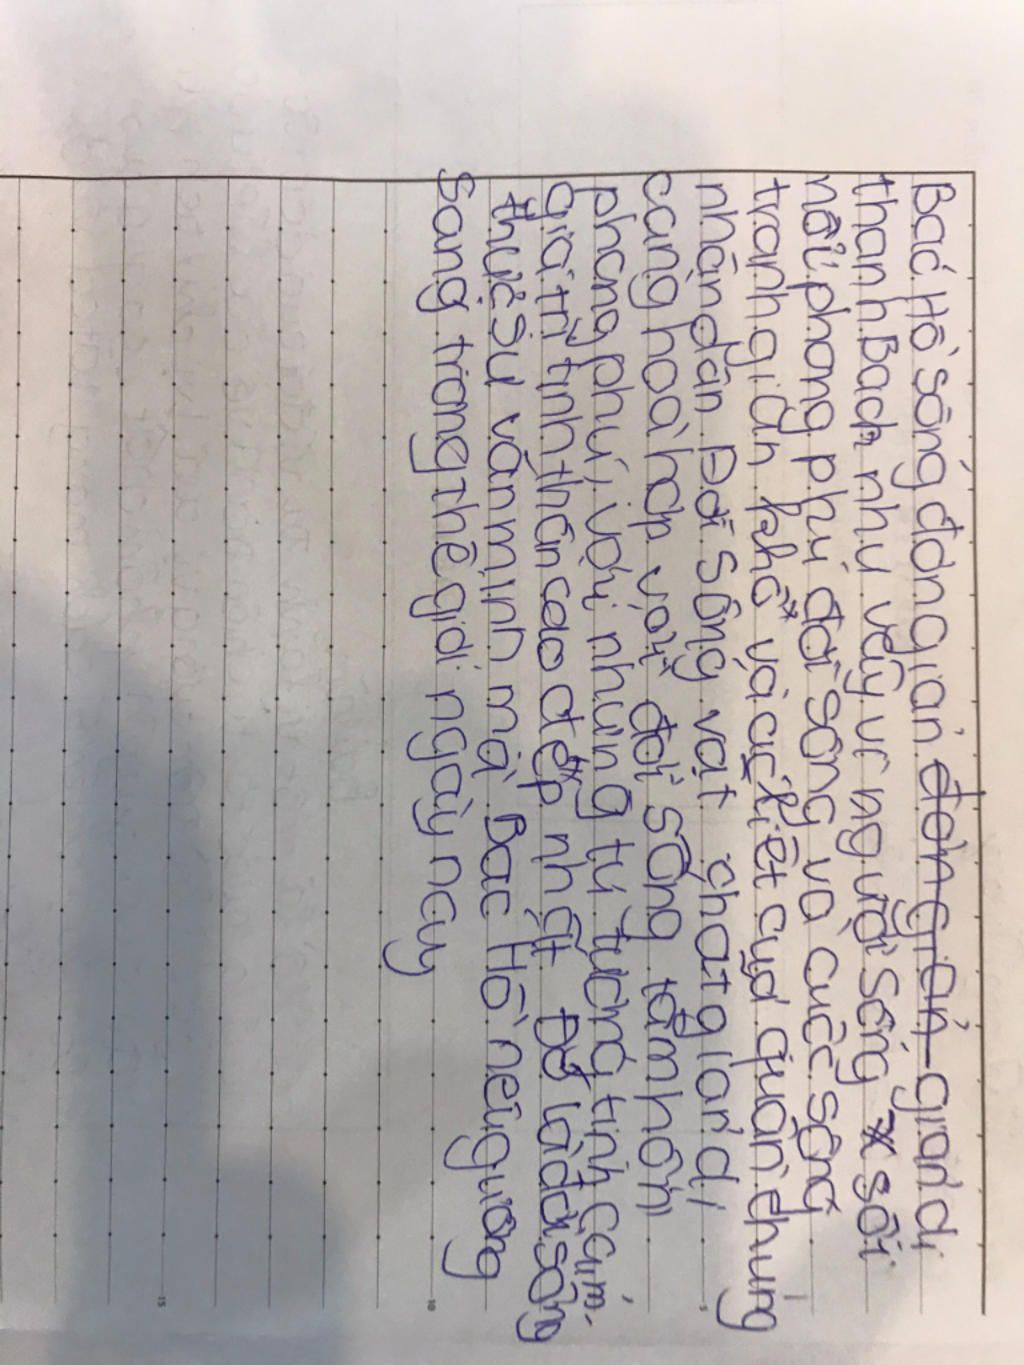 Bác Hồ sống đơn giản đơn giản giản dị
thanh Bạch như vậy vì người sống x sôi
nổi phong phú đời sống và cuộc sống
tranh gian khổ và ác liệt của quần chúng
nhân dân Đời sống vật chất giản dị
càng hoà hợp với đời sống tâm hồn
phong phú, với những tư tưởng tình cảm,
giá trị tinh thần cao đẹp nhất Đó là đời sống
thực sự văn minh mà Bác Hồ nêu gương
sáng trong thế giới ngày nay
5
10
15